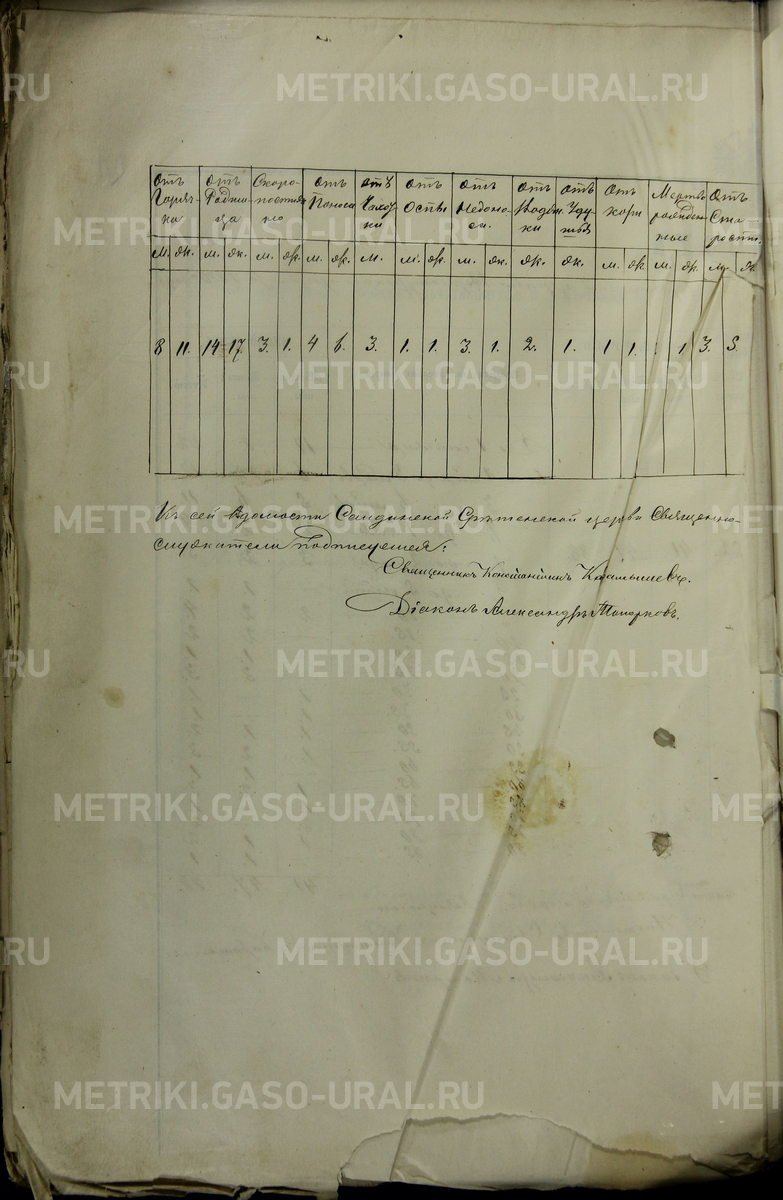 Отъ Горяч- ка | Отъ Родим- ца | Скоро- постижно | Отъ Поноса | Отъ | Отъ Оспы | Отъ Недоно- ск. | Отъ Водян- ки | Отъ Уду- шья | Отъ кори | Мертво рожден- ные | Отъ Ста- рости.
м. | ж. | м. | ж. | м. | ж. | м. | ж. | м. | м. | ж. | м. | ж. | ж. | ж. | м. | ж. | м. | ж. | м. | ж.
8 | 11. | 14 | 17. | 3. | 1. | 4 | 6. | 3. | 1. | 1. | 3. | 1. | 2. | 1. | 1 | 1. | 1 | 3. | 5.
Къ сей вѣдомости Срѣтенской церкви Священно-
служители подписуемся:
Священникъ Константинъ
Діаконъ Александръ Топорковъ.
METRIKI.GASO-URAL.RU